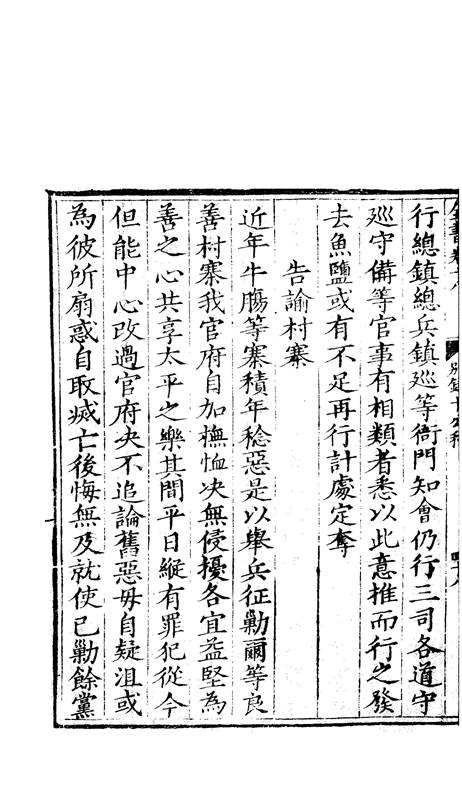 行總鎮總兵鎮廵等衙門知會仍行三司各道守
廵守備等官事有相類者悉以此意推而行之發
去魚鹽或有不足再行計處定奪
告諭村寨
近年牛腸等寨積年稔惡是以舉兵征勦爾等良
善村寨我官府自加撫恤决無侵擾各宜益堅為
善之心共享太平之樂其間平日縱有罪犯從今
但能中心改過官府决不追論舊惡毋自疑沮或
為彼所扇惑自取滅亡後悔無及就使已勦餘黨